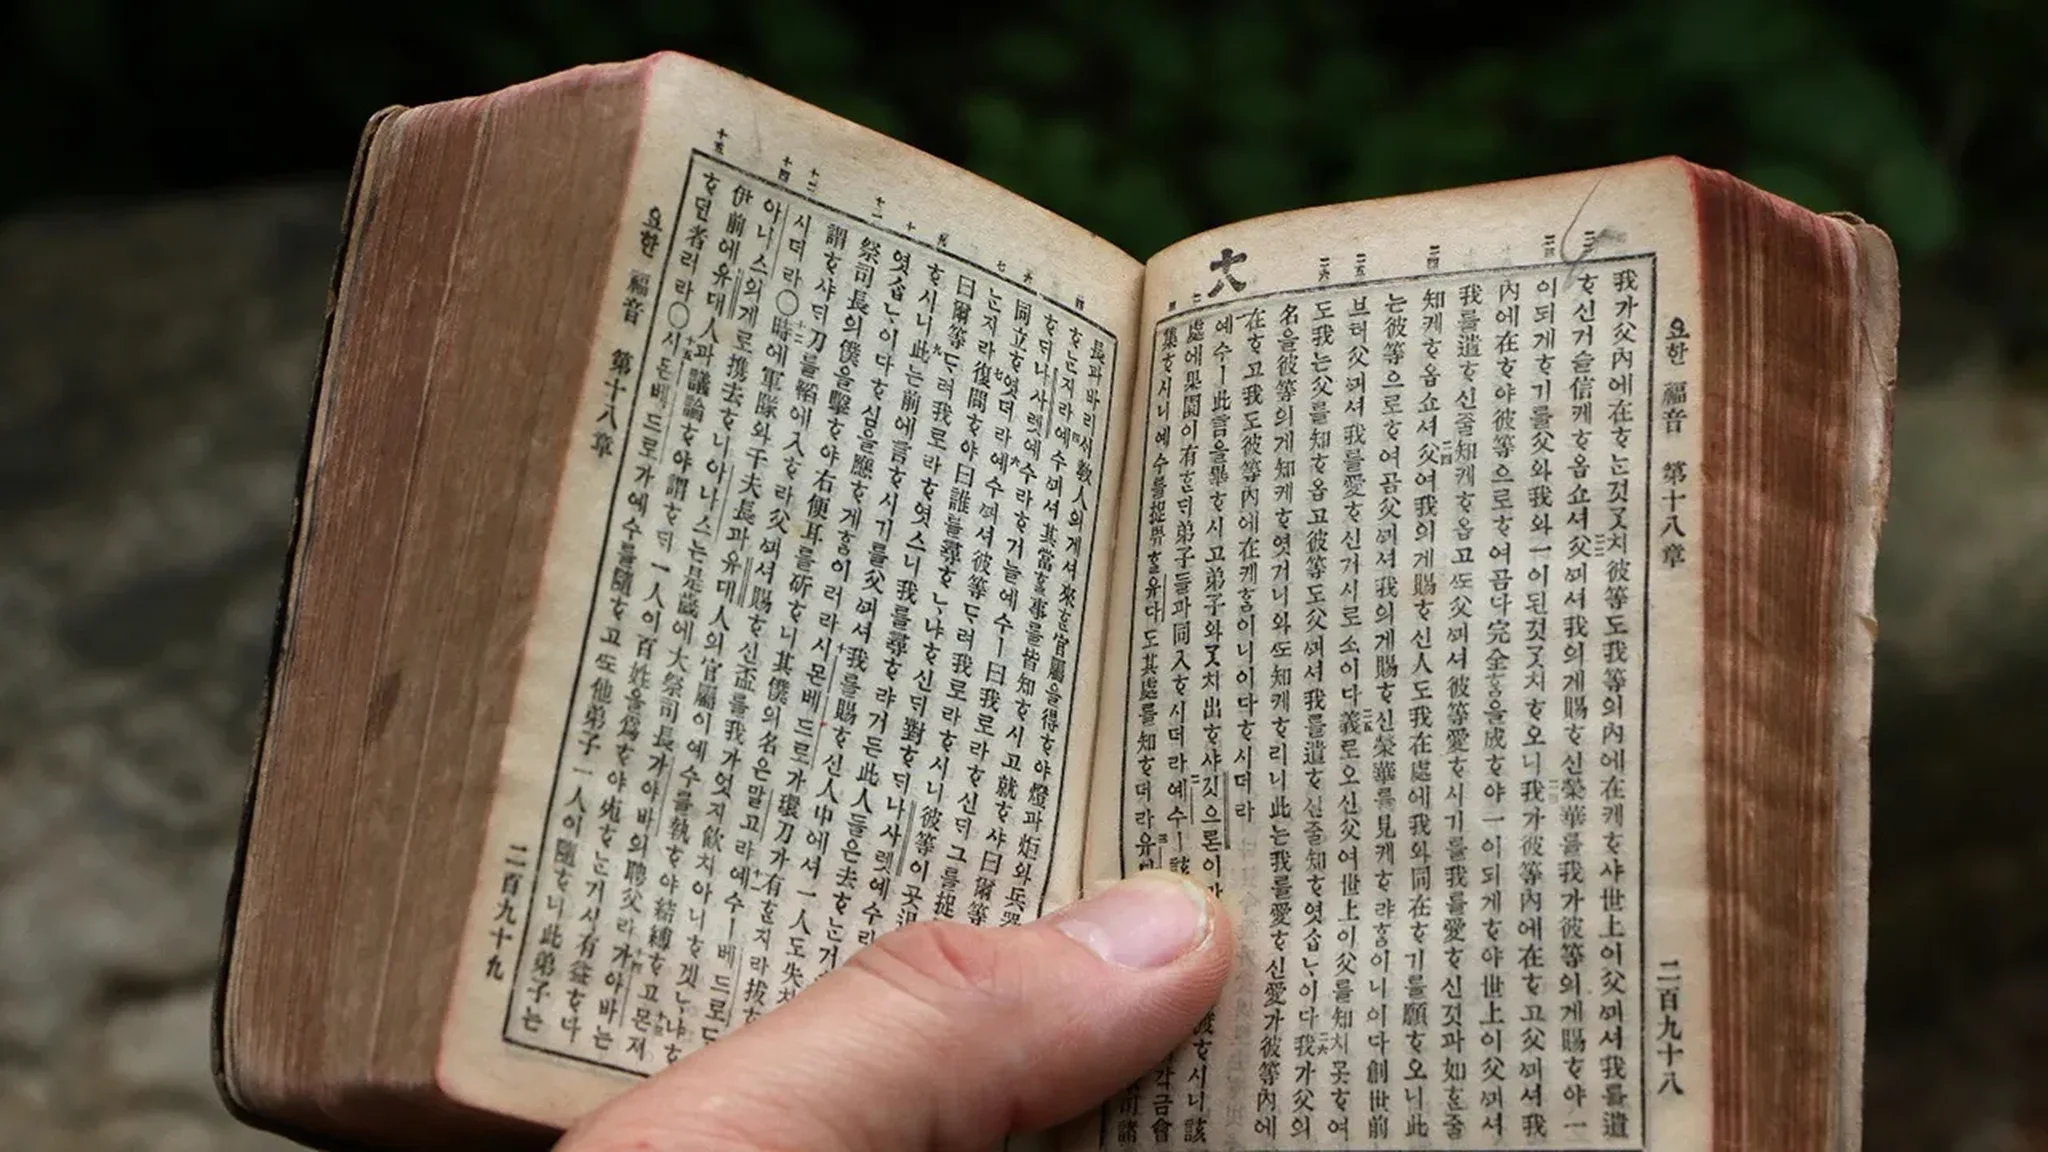 요한 福音 第十八章 二百九十八
我가父內에在ᄒᆞᄂᆞᆫ것ᄀᆞᆺ치彼等도我等의內에在케ᄒᆞ샤世上이父ᄭᅴ셔我를遣
ᄒᆞ신거슬信케ᄒᆞ옵쇼셔父ᄭᅴ셔我의게賜ᄒᆞ신榮華를我가彼等의게賜ᄒᆞ야一
이되게ᄒᆞ기를父와我와一이된것ᄀᆞᆺ치ᄒᆞ오니我가彼等內에在ᄒᆞ고父ᄭᅴ셔我
內에在ᄒᆞ야彼等으로ᄒᆞ여곰다完全ᄒᆞᆷ을成ᄒᆞ야一이되게ᄒᆞ야世上이父ᄭᅴ셔
我를遣ᄒᆞ신줄知케ᄒᆞ옵고ᄯᅩ父ᄭᅴ셔彼等愛ᄒᆞ시기를我를愛ᄒᆞ신것과如ᄒᆞᆫ줄
知케ᄒᆞ옵쇼셔父여我의게賜ᄒᆞ신人도我在處에我와同在ᄒᆞ기를願ᄒᆞ오니此
는彼等으로ᄒᆞ여곰父ᄭᅴ셔我의게賜ᄒᆞ신榮華를見케ᄒᆞ랴ᄒᆞᆷ이니이다創世前
브터父ᄭᅴ셔我를愛ᄒᆞ신거시로소이다義로오신父여世上이父를知치못ᄒᆞ여
도我는父를知ᄒᆞ옵고彼等도父ᄭᅴ셔我를遣ᄒᆞ신줄知ᄒᆞ엿삽ᄂᆞ이다我가父의
名을彼等의게知케ᄒᆞ엿거니와ᄯᅩ知케ᄒᆞ리니此는我를愛ᄒᆞ신愛가彼等內에
在ᄒᆞ고我도彼等內에在케ᄒᆞᆷ이니이다ᄒᆞ시더라
十八
예수ㅣ此言을畢ᄒᆞ시고弟子와ᄀᆞᆺ치出ᄒᆞ샤깃으론이 渡ᄒᆞ시니該
處에果園이有ᄒᆞᆫᄃᆡ弟子들과同入ᄒᆞ시더라예수ㅣ該 各금會
集ᄒᆞ시니예수를捉畀ᄒᆞᆯ유다도其處를知ᄒᆞ더라유 司諸
長과바리시敎人의게셔來ᄒᆞᆫ官屬을得ᄒᆞ야燈과炬와兵器
ᄒᆞᄂᆞᆫ지라예수ᄭᅴ셔其當ᄒᆞᆯ事를皆知ᄒᆞ시고就ᄒᆞ샤曰爾等
ᄒᆞᆫᄃᆡ나사렛예수라ᄒᆞ거늘예수ㅣ曰我로라ᄒᆞ신ᄃᆡ그를捉
同立ᄒᆞ엿더라예수ᄭᅴ셔彼等ᄃᆞ려我로라ᄒᆞ시니彼等이곳退
는지라復問ᄒᆞ야曰誰를尋ᄒᆞᄂᆞ냐ᄒᆞ신ᄃᆡ對ᄒᆞᄃᆡ나사렛예수라
曰爾等ᄃᆞ려我로라ᄒᆞ엿스니我를尋ᄒᆞ랴거든此人들은去ᄒᆞᄂᆞᆫ거
ᄒᆞ시니此는前에言ᄒᆞ시기를父ᄭᅴ셔我를賜ᄒᆞ신人中에셔一人도失치
엿삽ᄂᆞ이다ᄒᆞ심을應ᄒᆞ게ᄒᆞᆷ이러라시몬베드로가環刀가有ᄒᆞᆫ지라拔ᄒᆞ
祭司長의僕을擊ᄒᆞ야右便耳를斫ᄒᆞ니其僕의名은말고라예수ㅣ베드로ᄃ
謂ᄒᆞ샤ᄃᆡ刀를鞱에入ᄒᆞ라父ᄭᅴ셔賜ᄒᆞ신盃를我가엇지飮치아니ᄒᆞ겟ᄂᆞ냐ᄒᆞ
시더라○時에軍隊와千夫長과유대人의官屬이예수를執ᄒᆞ야結縛ᄒᆞ고몬저
아나스의게로携去ᄒᆞ니아나스는是歲에大祭司長가야바의聘父라가야바는
伊前에유대人과議論ᄒᆞ야謂ᄒᆞᄃᆡ一人이百姓을爲ᄒᆞ야死ᄒᆞᄂᆞᆫ거시有益ᄒᆞ다
ᄒᆞ던者러라○시몬베드로가예수를隨ᄒᆞ고ᄯᅩ他弟子一人이隨ᄒᆞ니此弟子는
요한 福音 第十八章 二百九十九